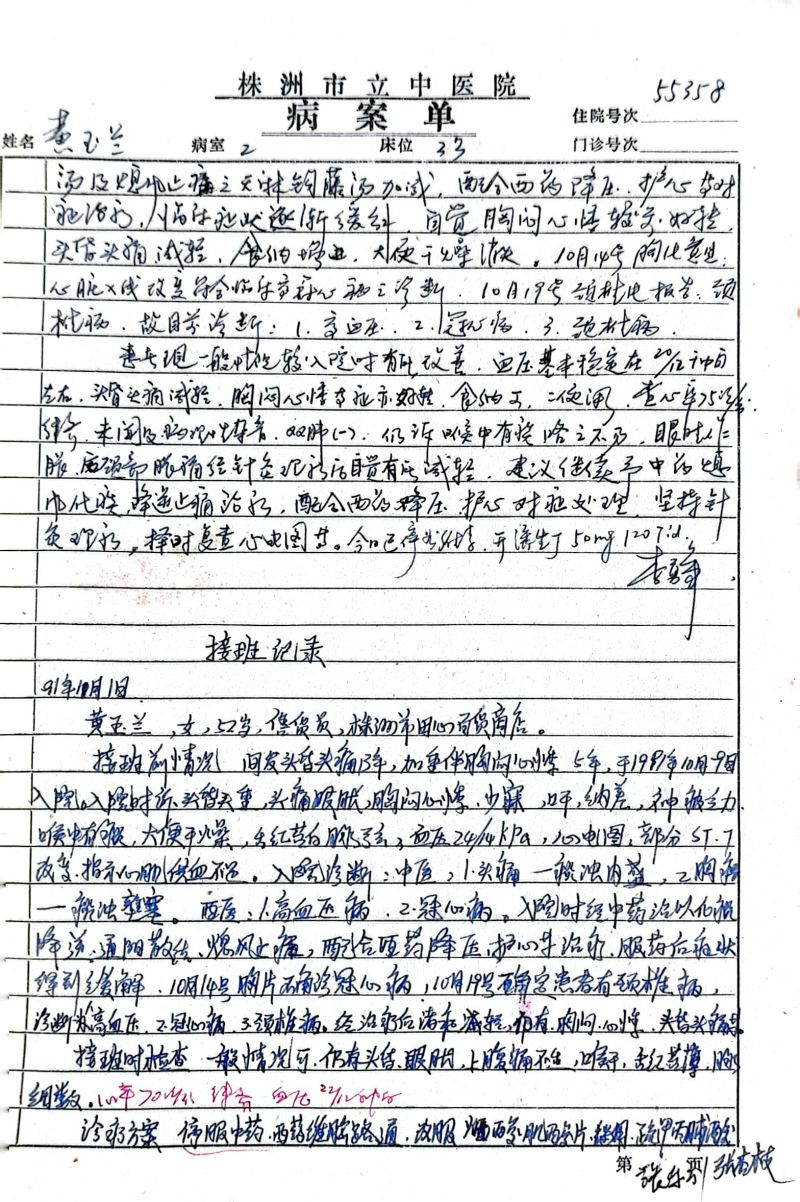 株洲市立中医院
55358
病案单
住院号次
姓名 黄玉兰 病室 2 床位 33 门诊号次
汤及熄风止痛之天麻钩藤汤加减,配合西药降压、护心等对
症治疗,临床症状逐渐缓解,自觉胸闷心悸较前好转,
头昏头痛减轻,食纳增进,大便干燥消失。10月14号胸片意见:
心脏X线改变符合临床高冠心病之诊断,10月19号颈椎片报告:颈
椎病。故目前诊断:1.高血压。2.冠心病。3.颈椎病。
患者现一般情况较入院时有所改善,血压基本稳定在20/12
左右,头昏头痛减轻,胸闷心悸等症亦好转,食纳可,二便调,查心率75次/分
律齐,未闻及病理性杂音,双肺(-),仍诉喉中有痰咯之不爽,眼时
胀,后颈部胀痛经针灸理疗后自觉有所减轻,建议继续予中药熄
风化痰,降逆止痛治疗,配合西药降压、护心对症处理,坚持针
灸理疗,择时复查心电图等。今日已停 开 50mg 120 Tid.
接班记录
91年11月1日
黄玉兰,女,52岁,保货员,株洲市田心百货商店。
接班前情况 间发头昏头痛13年,加重伴胸闷心悸5年,于1991年10月9日
入院。入院时诉头昏头重,头痛眼胀,胸闷心悸,少寐,口干,纳差,神疲乏力
喉中有痰,大便干燥,舌红苔白脉弦,血压24/14kPa,心电图,部分ST-T
改变,指示心肌供血不足。入院诊断:中医,1.头痛—痰浊内蕴,2.胸痹
—痰浊壅塞。西医:1.高血压病,2.冠心病。入院时经中药治以化痰
降逆,通阳散结,熄风止痛,配合西药降压,护心等治疗,服药后症状
得到缓解。10月14号胸片而确诊冠心病,10月19号确定患者有颈椎病,
诊断为高血压,2.冠心病,3.颈椎病。经治疗后诸症减轻,仍有胸闷,心悸,头昏头痛等。
接班时检查 一般情况可,仍有头昏,眼胀,上腹痛不适,口干,舌红苔薄,脉
细数。心率70次/分 律齐 血压22/12
诊疗方案 停服中药,西药维脑路通,改服 肌
第 页